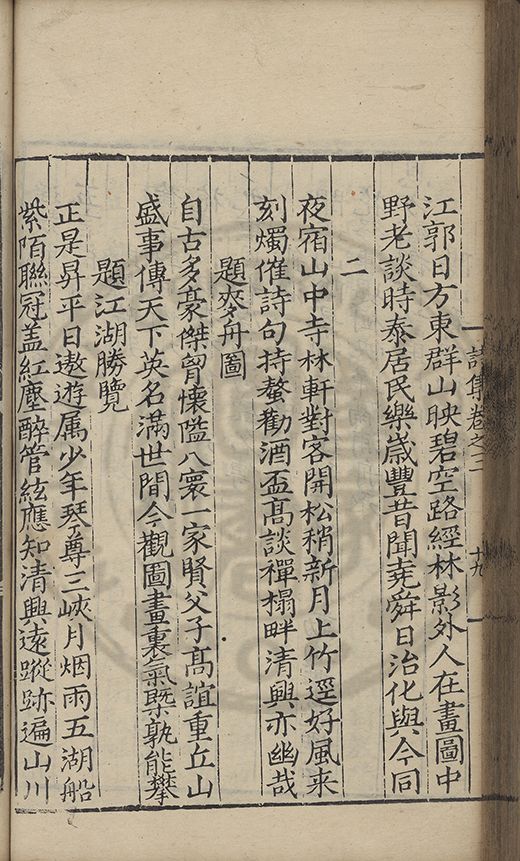 詩集卷之二 十九
江郭日方東群山映碧空路經林影外人在畫圖中
野老談時泰居民樂歲豐昔聞堯舜日治化與今同
二
夜宿山中寺林軒對客開松稍新月上竹逕好風来
刻燭催詩句持螯勸酒盃髙談禪榻畔清興亦幽哉
題麥舟圖
自古多豪傑胷懷隘八寰一家賢父子髙誼重丘山
盛事傳天下英名滿世間今觀圖畫裏氣槩孰能攀
題江湖勝覽
正是昇平日遨遊属少年琴尊三峽月烟雨五湖船
紫陌聯冠盖紅塵醉管絃應知清興遠蹤跡遍山川